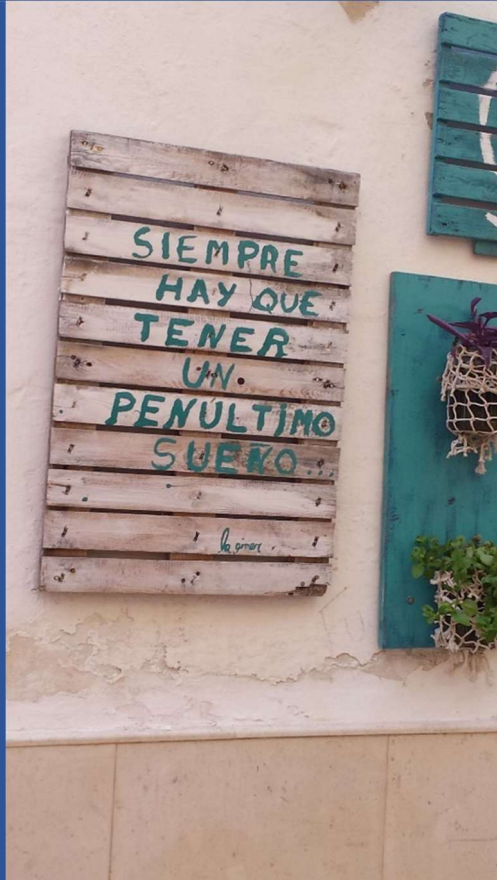 SIEMPRE
HAY QUE
TENER
UN
PENÚLTIMO
SUEÑO...